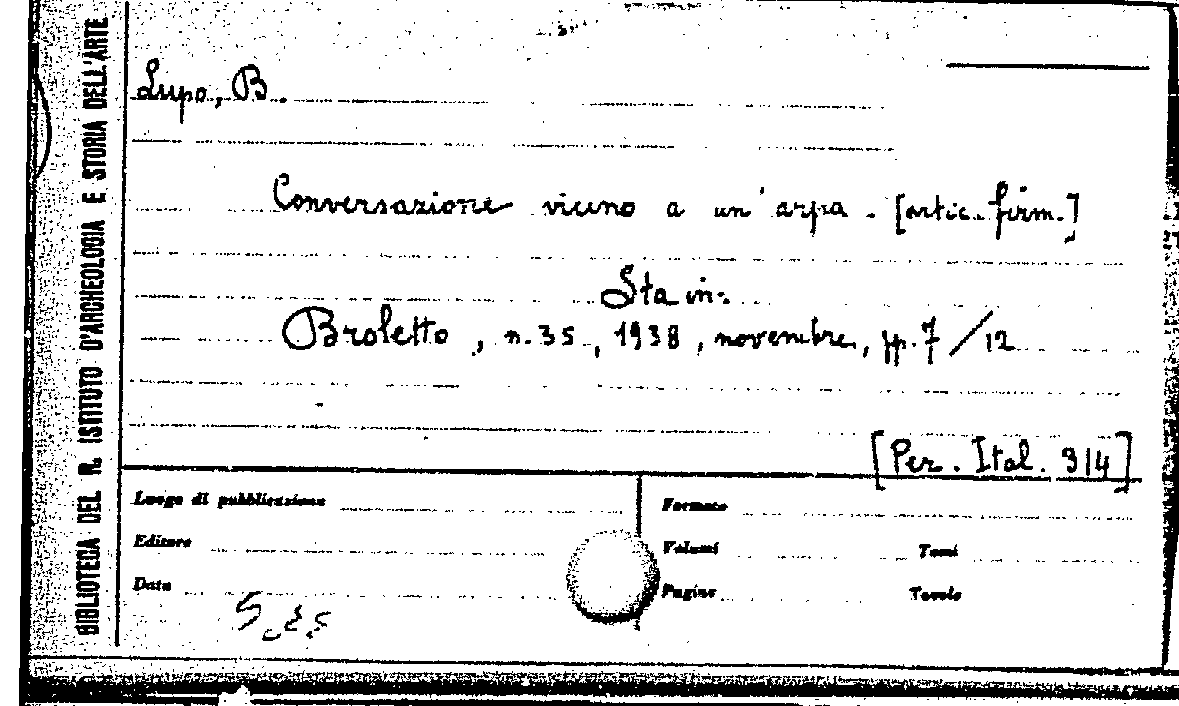 BIBLIOTECA DEL R. ISTITUTO D'ARCHEOLOGIA E STORIA DELL'ARTE
Lupo, B.
Conversazione vicino a un'arpa. [artic. firm.]
Sta in:
Broletto, n. 35, 1938, novembre, pp. 7/12
[Per. Ital. 314]
Luogo di pubblicazione
Formato
Editore
Volumi Tomi
Data
Pagine Tavole